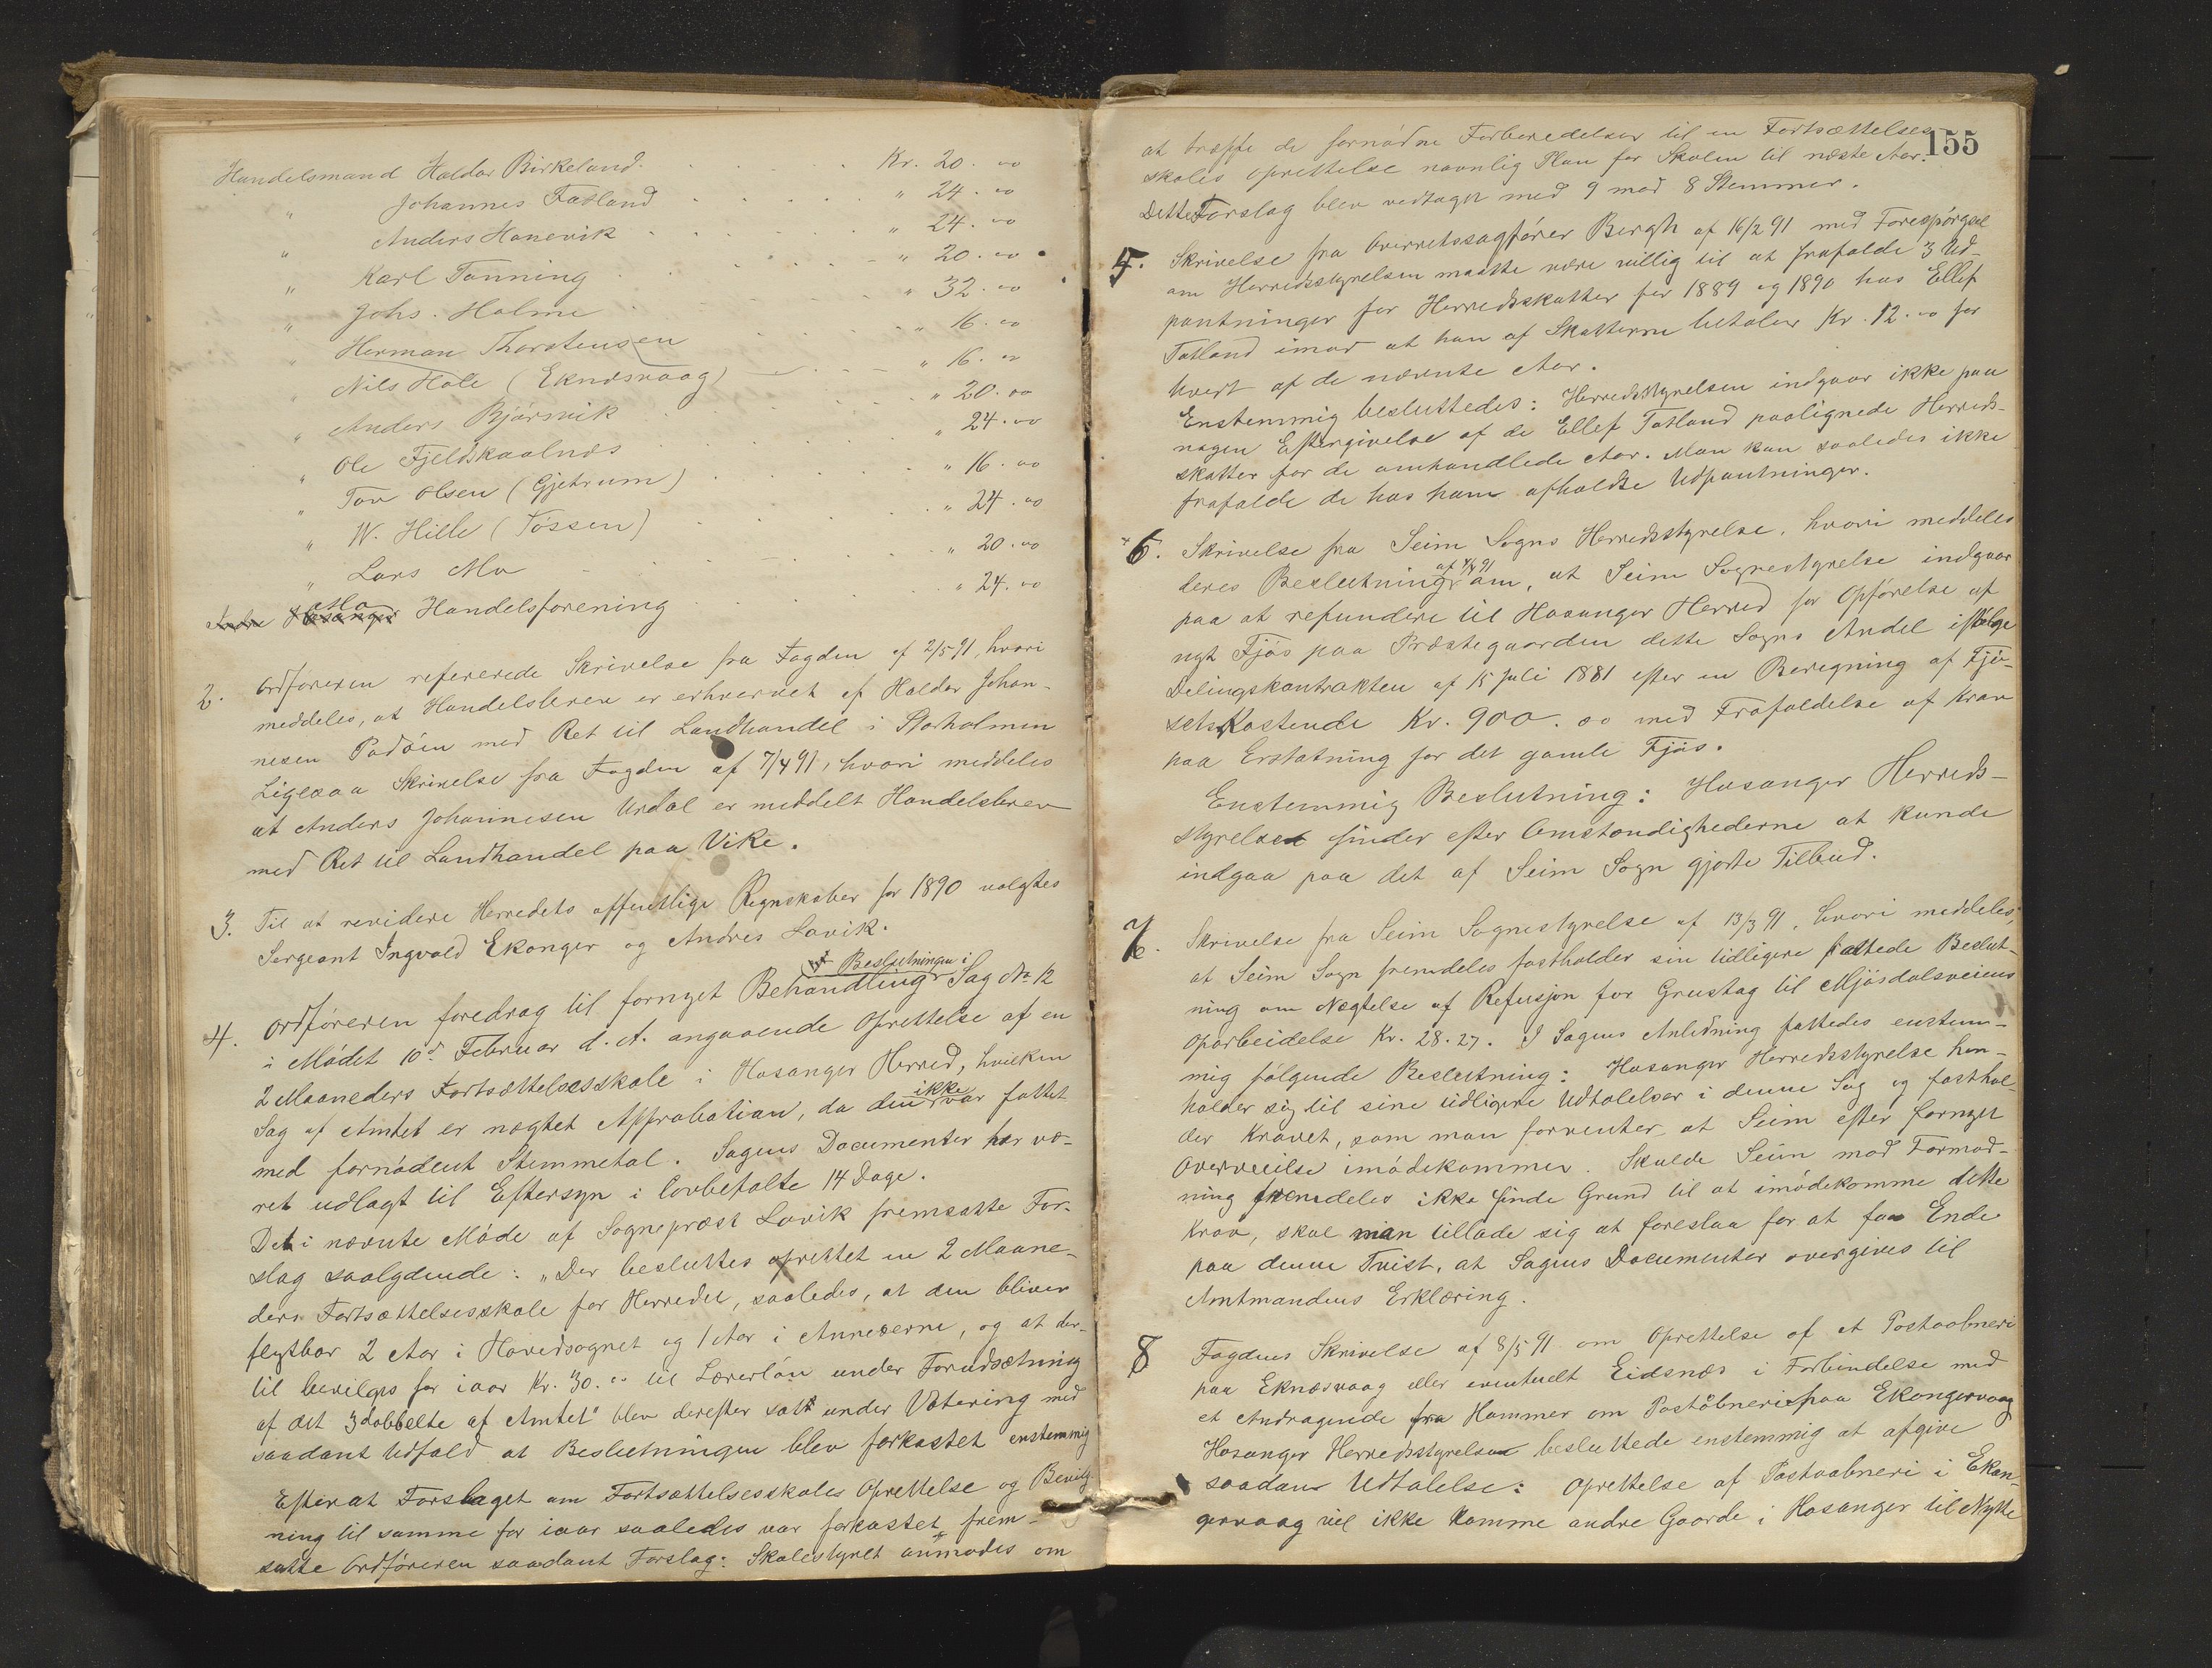 Handelsmand Haldor Birkeland . . . Kr. 20.00
" Johannes Fatland . . . " 24.00
" Anders Hanevik . . . " 24.00
" Karl Tonning . . . " 20.00
" Johs. Holme . . . " 32.00
" Herman Thorstensen . . . " 16.00
" Nils Hole (Eknæsvaag) . . . " 16.00
" Anders Bjørsvik . . . " 20.00
" Ole Fjeldskaalnæs . . . " 24.00
" Tov Olsen (Gjetrum) . . . " 16.00
" W. Hille (Tøssen) . . . " 24.00
" Lars Mo . . . " 20.00
Indre Hosanger Mo Handelsforening . . . " 24.00
2. Ordføreren refererede Skrivelse fra Fogden af 2/5 91, hvori
meddeles, at Handelsbrev er erhvervet af Haldor Johan-
nesen Padøen med Ret til Landhandel i Storholmen
Ligesaa Skrivelse fra Fogden af 7/4 91, hvori meddeles
at Anders Johannesen Urdal er meddelt Handelsbrev
med Ret til Landhandel paa Vike.
3. Til at revidere Herredets offentlige Regnskaber for 1890 valgtes
Sergeant Ingvald Ekanger og Andres Lavik.
4. Ordføreren foredrog til fornyet Behandling af Beslutningen i Sag No 12
i Mødet 10de Februar d. A. angaaende Oprettelse af en
2 Maaneders Fortsættelsesskole i Hosanger Herred, hvilken
Sag af Amtet er nægtet Approbation, da den ikke var fattet
med fornødent Stemmetal. Sagens Documenter har væ-
ret udlagt til Eftersyn i lovbefalte 14 Dage.
Det i nævnte Møde af Sogneprest Lavik fremsatte For-
slag saalydende: "Der besluttes oprettet en 2 Maane-
ders Fortsættelsesskole for Herredet, saaledes, at den bliver
flytbar 2 Aar i Hovedsognet og 1 Aar i Annexerne, og at der-
til bevilges for iaar Kr. 30.00 til Lærerløn under Forudsætning
af det 3dobbelte af Amtet" blev derefter satt under Votering med
saadant Udfald at Beslutningen blev forkastet enstemmig
Efterat Forslaget om Fortsættelsesskoles Oprettelse og Bevilg-
ning til samme for iaar saaledes var forkastet, frem-
satte Ordføreren saadant Forslag: Skolestyret anmodes om
155
at træffe de fornødne Forberedelser til en Fortsættelses-
skoles Oprettelse navnlig Plan for Skolen til næste Aar.
Dette Forslag blev vedtaget med 9 mod 8 Stemmer.
5. Skrivelse fra Overretssagfører Bergh af 16/2 91 med Forespørgsel
om Herredsstyrelsen maatte være villig til at frafalde 3 Ud-
pantninger for Herredsskatter for 1889 og 1890 hos Ellef
Fatland imod at han af Skatterne betaler Kr. 12.00 for
hvert af de nævnte Aar.
Enstemmig besluttedes: Herredsstyrelsen indgaar ikke paa
nogen Eftergivelse af de Ellef Fatland paalignede Herreds-
skatter for de omhandlede Aar. Man kan saaledes ikke
frafalde de hos ham afholdte Udpantninger.
6. Skrivelse fra Seim Sogns Herredsstyrelse, hvori meddeles
deres Beslutning af 4/4 91 om, at Seim Sognestyrelse indgaar
paa at refundere til Hosanger Herred for Opførelse af
nyt Fjøs paa Præstegaarden dette Sogns Andel ifølge
Delingskontrakten af 15 Juli 1881 efter en Beregning af Fjø-
sets Kostende Kr. 900.00 med Frafaldelse af Krav
paa Erstatning for det gamle Fjøs.
Enstemmig Beslutning: Hosanger Herreds-
styrelse finder efter Omstændighederne at kunde
indgaa paa det af Seim Sogn gjorte Tilbud.
7. Skrivelse fra Seim Sognestyrelse af 13/3 91, hvori meddeles,
at Seim Sogn fremdeles fastholder sin tidligere fattede Beslut-
ning om Nægtelse af Refusjon for Grustag til Mjøsdalsveiens
Oparbeidelse Kr. 28.27. I Sagens Anledning fattedes enstem-
mig følgende Beslutning: Hosanger Herredsstyrelse hen-
holder sig til sine tidligere Udtalelser i denne Sag og fasthol-
der Kravet, som man forventer at Seim efter fornyet
Overveielse imødekommer. Skulde Seim mod Formod-
ning fremdeles ikke finde Grund til at imødekomme dette
Krav, skal man tillade sig at foreslaa for at faa Ende
paa denne Tvist, at Sagens Documenter overgives til
Amtmandens Erklæring.
8 Fogdens Skrivelse af 8/5 91 om Oprettelse af et Postaabneri
paa Eknæsvaag eller eventuelt Eidsnæs i Forbindelse med
et Andragende fra Hammer om Postøbneri paa Ekangervaag
Hosanger Herredsstyrelse besluttede enstemmig at afgive
saadan Udtalelse: Oprettelse af Postaabneri i Ekan-
gervaag vil ikke komme andre Gaarde i Hosanger til Nytte